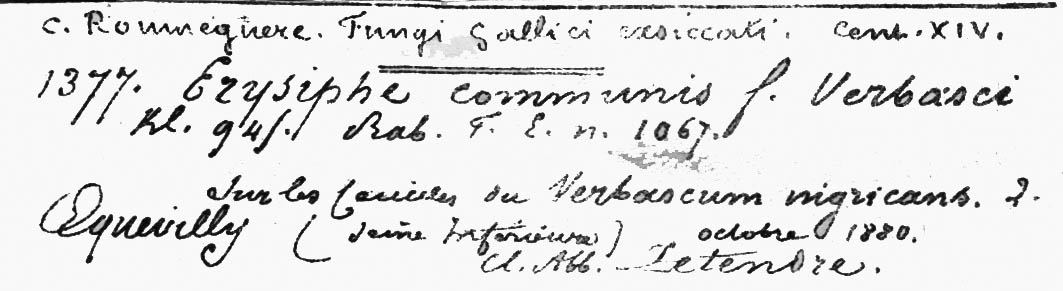 C. Roumeguere. Fungi Gallici exsiccati. Cent. XIV.
1377. Erysiphe communis f. Verbasci
Kl. 945. Rab. F. E. n. 1067.
Sur les feuilles du Verbascum nigricans.
Oquevilly (Seine Inférieure) octobre 1880.
Cl. Abb. Letendre.